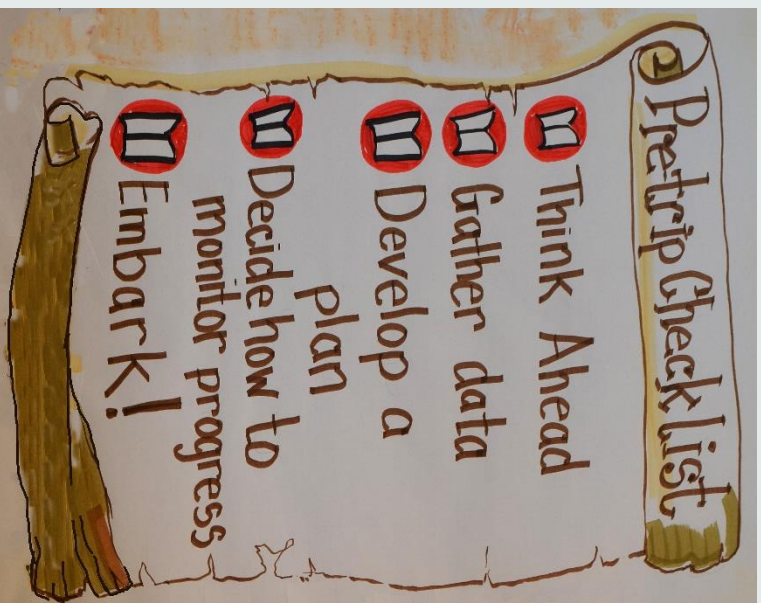 Pretrip Checklist
Think Ahead
Gather data
Develop a
plan
Decide how to
monitor progress
Embark!